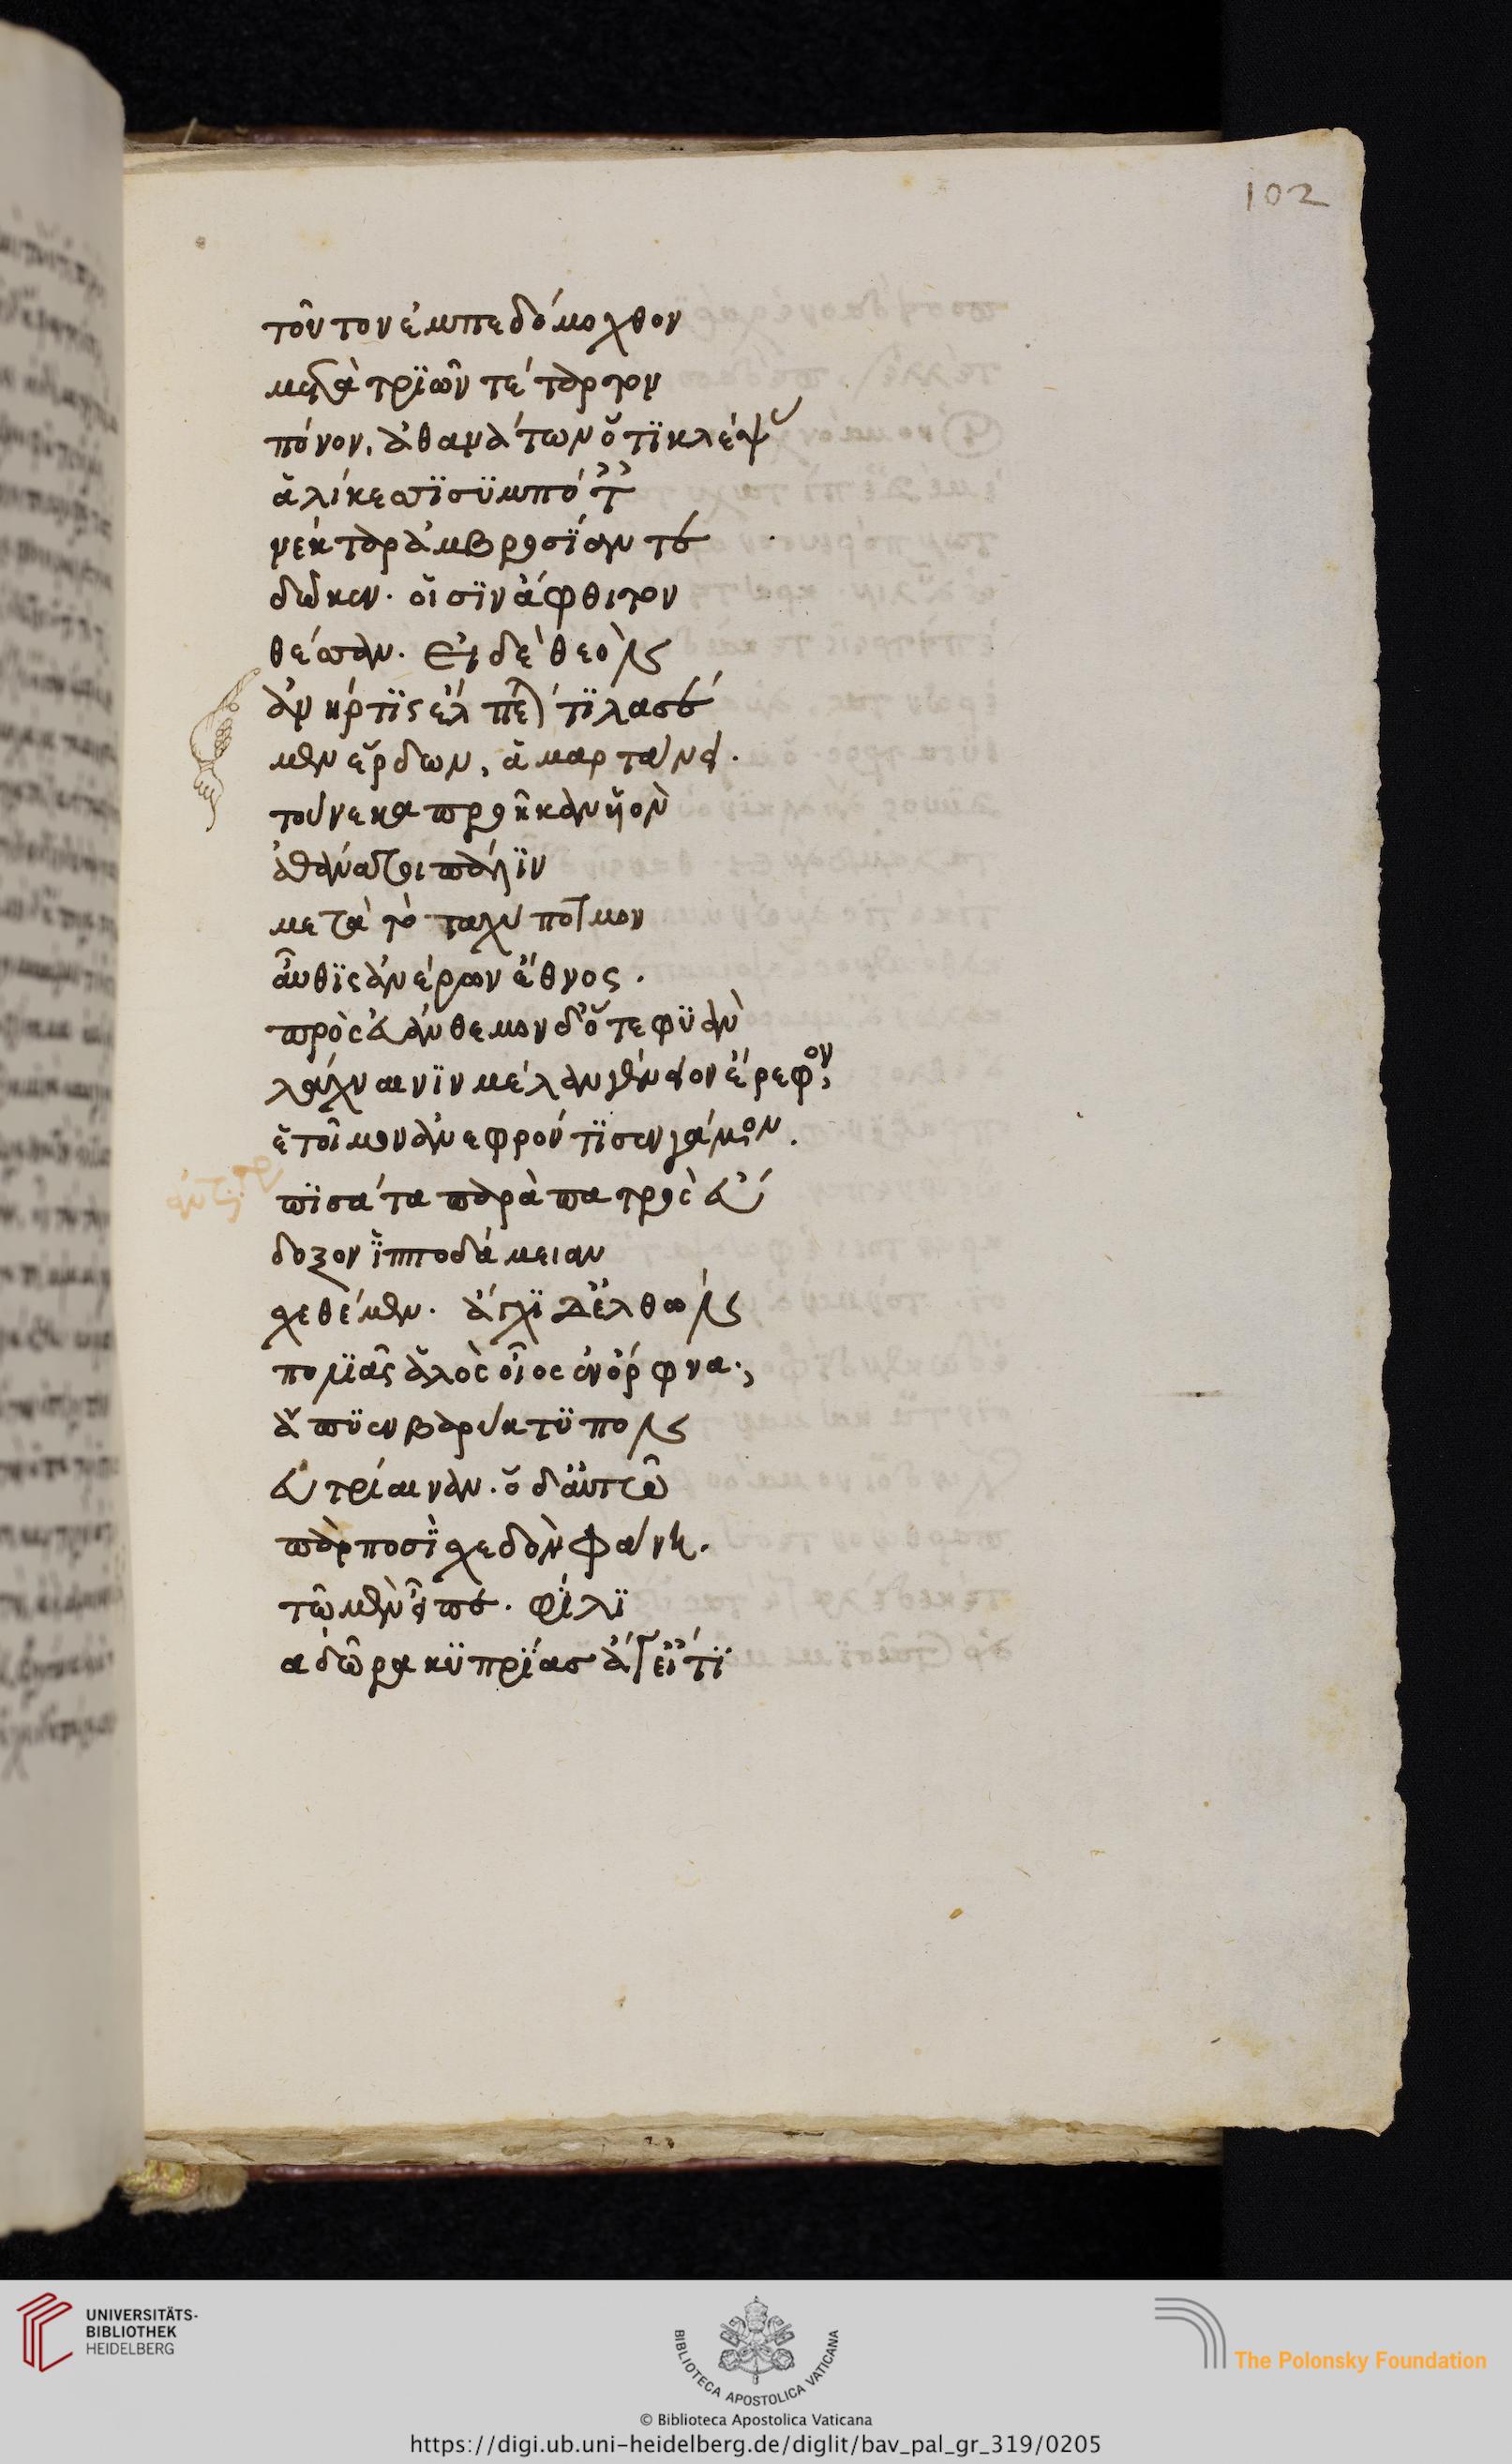 102
τοῦτον ἐμπεδόμοχθον
μετὰ τρϊῶν τέταρτον
πόνον. ἀθανάτων ὅτϊ κλέψας
ἁλίκεσσϊ σϋμπόταις
νέκταρ ἀμβροσΐαν τέ
δῶκεν· οἷσϊν ἄφθιτον
θέσαν. Εἰ δὲ θεὸν
ἀνήρ τϊς ἔλπεταί τϊ λασέ
μεν ἕρδων, ἁμαρτάνει.
τούνεκα προῆκαν υἱὸν
ἀθάνατοι πάλϊν
μετὰ τὸ ταχύποτμον
αὖθϊς ἀνέρων ἔθνος.
πρὸς εὐάνθεμον δ' ὅτε φϋὰν
λάχναι νϊν μέλαν γένειον ἔρεφον,
ἑτοῖμον ἀνεφρόντϊσεν γάμον.
πϊσάτα παρὰ πατρὸς εὔ
δοξον ἱπποδάμειαν
σχεθέμεν. ἄγχϊ δ' ἐλθών
πολϊᾶς ἁλὸς οἶος ἐν ὄρφνα,
ἄπϋεν βαρύκτϋπον
εὐτρίαιναν. ὁ δ' αὐτῶ
παρποσῒ σχεδὸν φάνη.
τῶ μὲν εἶπε. φΐλϊ
α δῶρα κϋπρΐας ἄγ' εἴ τϊ
UNIVERSITÄTS-
BIBLIOTHEK
HEIDELBERG
BIBLIOTECA APOSTOLICA VATICANA
The Polonsky Foundation
© Biblioteca Apostolica Vaticana
https://digi.ub.uni-heidelberg.de/diglit/bav_pal_gr_319/0205